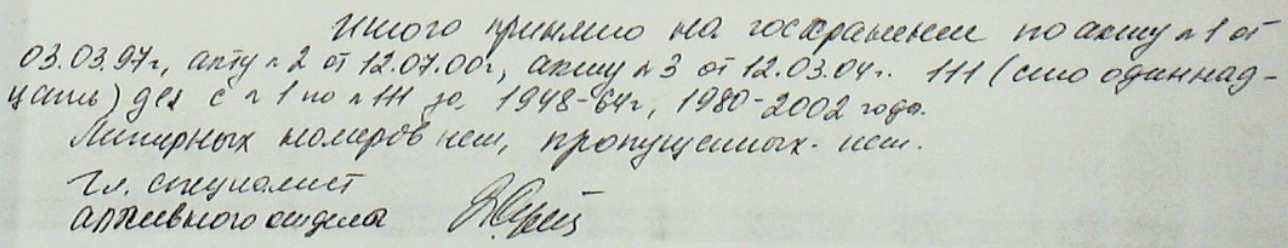 Итого принято на госхранение по акту № 1 от
03.03.97г, акту № 2 от 12.07.00г, акту № 3 от 12.03.04г. 111 (сто одиннад-
цать) дел с № 1 по № 111 за 1948-64г, 1980-2002 года.
Литерных номеров нет, пропущенных - нет.
Гл. специалист
архивного отдела